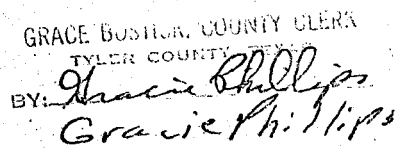 GRACE BOSTICK, COUNTY CLERK
TYLER COUNTY, TEXAS
BY: Gracie Phillips
Gracie Phillips